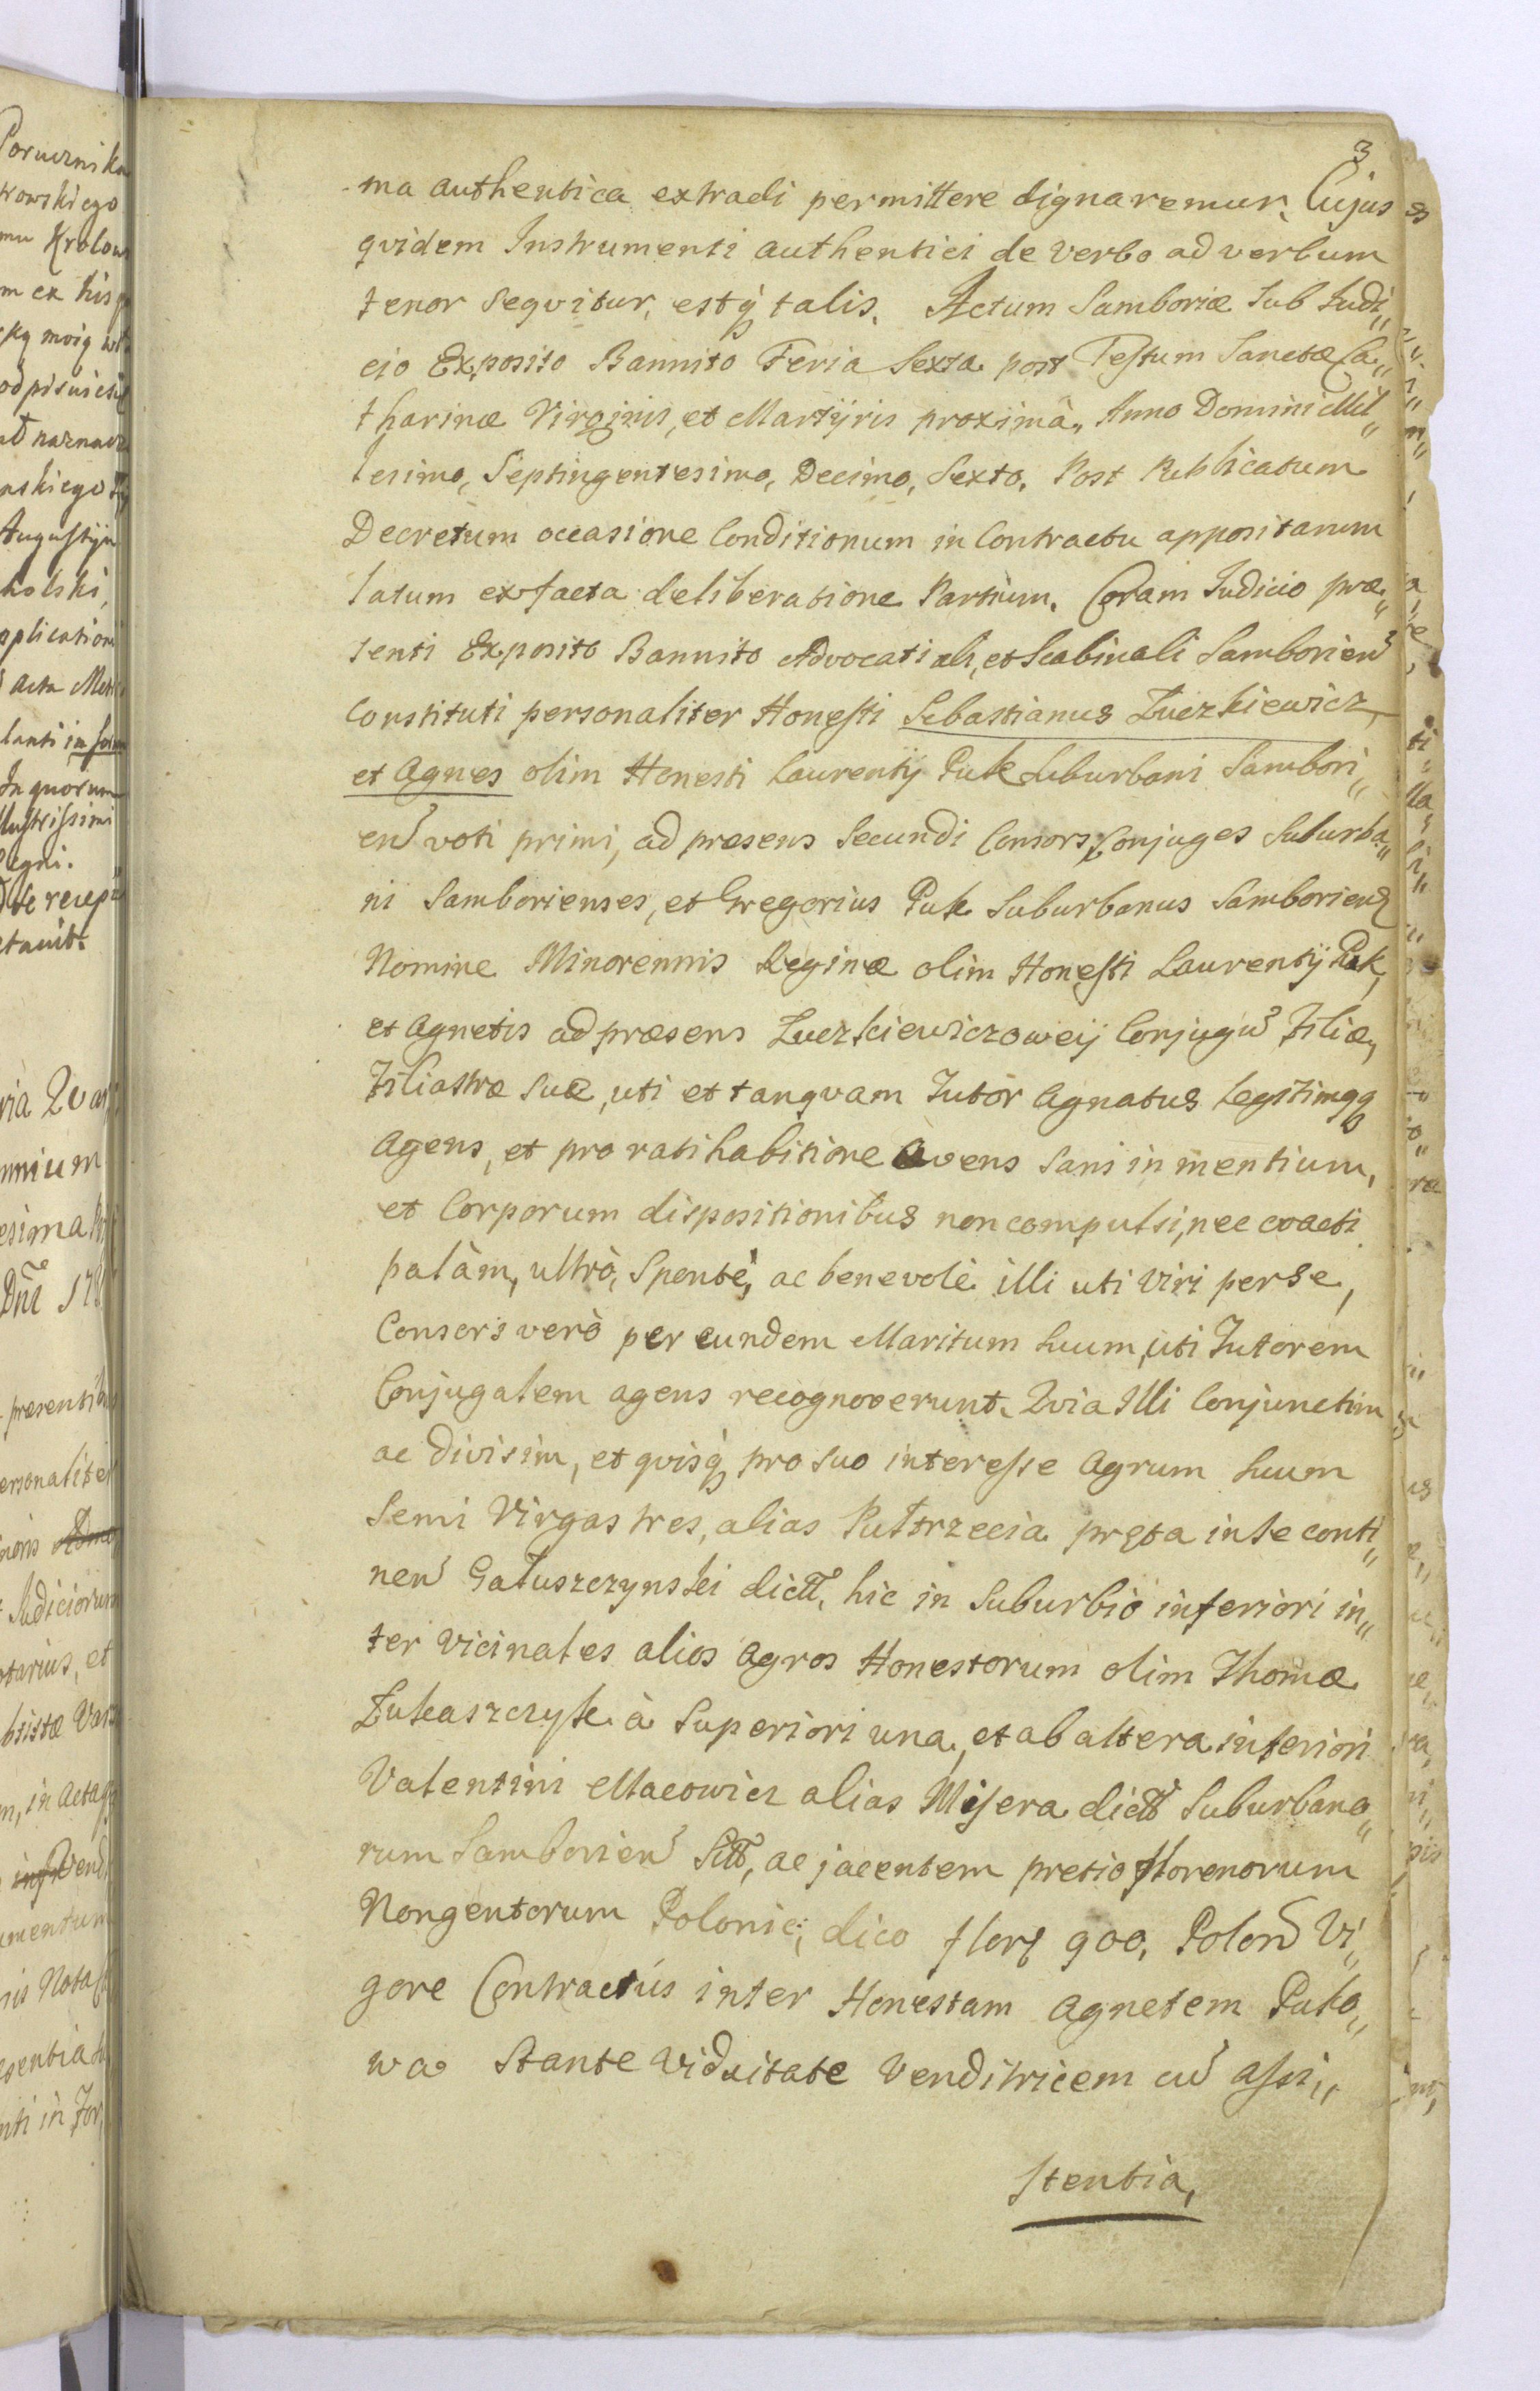 3
ma authentica extradi permittere dignaremur. Cujus
qvidem Instrumenti authentici de verbo ad verbum
tenor seqvitur, estq́ talis. Actum Samboriæ sub Judi„
cio Exposito Bannito Feria Sexta post Festum Sanctæ Ca„
tharinæ Virginis, et Martyris proximâ, Anno Domini Mil„
lesimo, Septingentesimo, Decimo, Sexto. Post Publicatum
Decretum occasione Conditionum in Contractu appositarum
latum ex facta deliberatione Partium. Coram Judicio præ„
senti Exposito Bannito Advocatiali, et Scabinali Samborien̄
Constituti personaliter Honesti Sebastianus Łuczkiewicz,
et Agnes olim Honesti Laurentij Puk Suburbani Sambori„
en̄ voti primi, ad præsens Secundi Consors, Conjuges Suburba„
ni Samborienses, et Gregorius Puk Suburbanus Samborien̄
Nomine Minorennis Reginæ olim Honesti Laurentij Puk,
et Agnetis ad præsens Łuczkiewiczoweÿ Conjugu̅ Filiæ,
Filiastræ suæ, uti et tanqvam Tutor Agnatus Legitimqq́
Agens, et pro ratihabitione Cavens sani in mentium,
et Corporum dispositionibus non compulsi, nec coacti
palàm, ultrò, Spontè, ac benevolè illi uti Viri per se,
Consors verò per eundem Maritum suum, uti Tutorem
Conjugalem agens recognoverunt. Qvia Illi Conjunctim
ac Divisim, et qvisq́ pro suo interesse Agrum suum
Semi Virgas tres, alias Pułtrzecia pręta in se conti„
nen̄ Gałuszczynski dictt̄, hic in Suburbio inferiori in„
ter vicinales alios Agros Honestorum olim Thomæ
Łukaszczyk à Superiori una, et ab altera inferiori
Valentini Macowicz alias Misera dictt̄ Suburbano„
rum Samborien̄ Sitt̄, ac jacentem pretio florenorum
Nongentorum Polonic:, dico flor̄ 900, Polon̄ Vi„
gore Contractûs inter Honestam Agnetem Puko„
wa Stante Viduitate Venditricem cu̅ assi„
stentia,